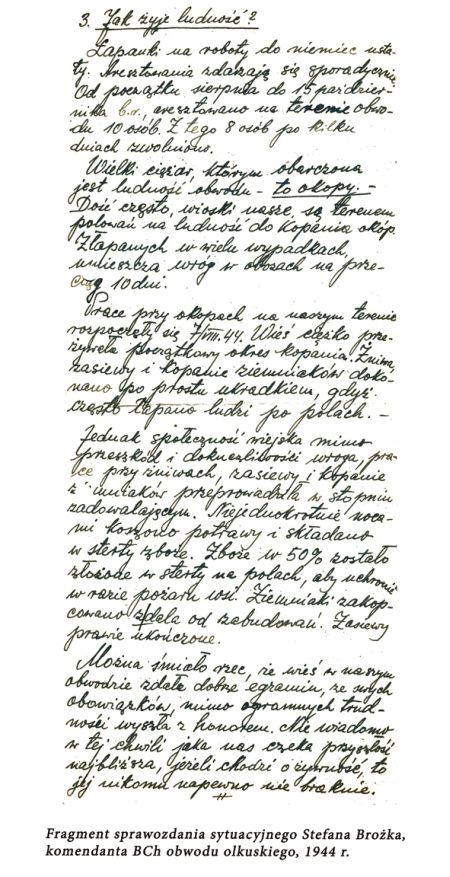 3. Jak żyje ludność?
Łapanki na roboty do niemiec usta-
ły. Aresztowania zdarzają się sporadycznie.
Od początku sierpnia do 15 paździer-
nika b.r., aresztowano na terenie obwo-
du 10 osób. Z tego 8 osób po kilku
dniach zwolniono.
Wielki ciężar, którym obarczona
jest ludność obwodu - to okopy. -
Dość często, wioski nasze, są terenem
polowań na ludność do kopania okóp.
Złapanych w wielu wypadkach,
umieszcza wróg w obozach na prze-
ciąg 10 dni.
Prace przy okopach na naszym terenie
rozpoczęły się 7/VIII.44. Wieś ciężko prze-
żywała początkowy okres kopania. Żniwa,
zasiewy i kopanie ziemniaków doko-
nano po prostu ukradkiem, gdyż
często łapano ludzi po polach. -
Jednak społeczność wiejska mimo
przeszkód i dokuczliwości wroga, pra-
ce przy żniwach, zasiewy i kopanie
z iemniaków przeprowadziła w stopniu
zadowalającym. Niejednokrotnie noca-
mi koszono potrawy i składano
w sterty zboże. Zboże w 50% zostało
złożone w sterty na polach, aby uchronić
w razie pożaru wsi. Ziemniaki zakop-
cowano zdala od zabudowań. Zasiewy
prawie ukończone.
Można śmiało rzec, że wieś w naszym
obwodzie zdała dobrze egzamin, ze swych
obowiązków, mimo ogromnych trud-
ności wyszła z honorem. Nie wiadomo
w tej chwili jaka nas czeka przyszłość
najbliższa, jeżeli chodzi o żywność, to
jej nikomu napewno nie braknie.
Fragment sprawozdania sytuacyjnego Stefana Brożka,
komendanta BCh obwodu olkuskiego, 1944 r.